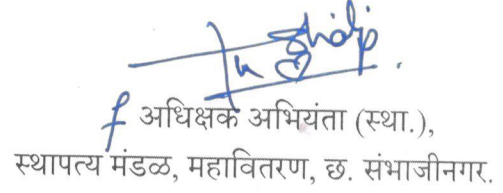 अधिक्षक अभियंता (स्था.),
स्थापत्य मंडळ, महावितरण, छ. संभाजीनगर.